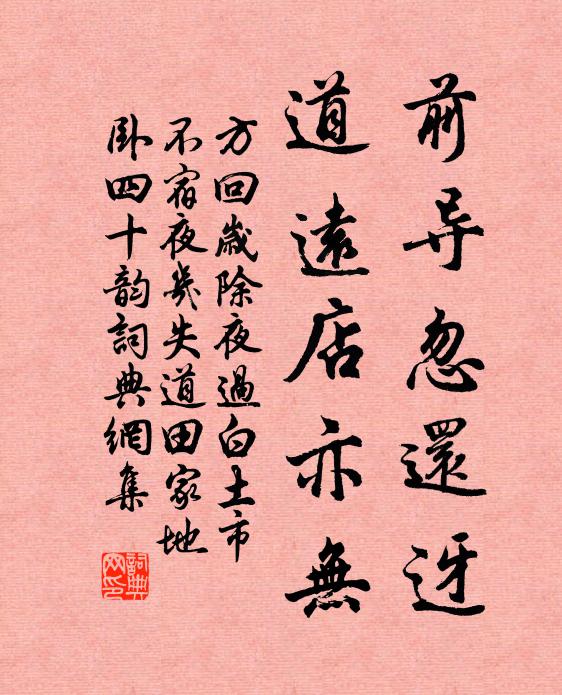 前导忽還迓
道遠店亦無
方回歲除夜過白土市
不宿夜幾失道田家地
卧四十韵詞典網集
詞典网印